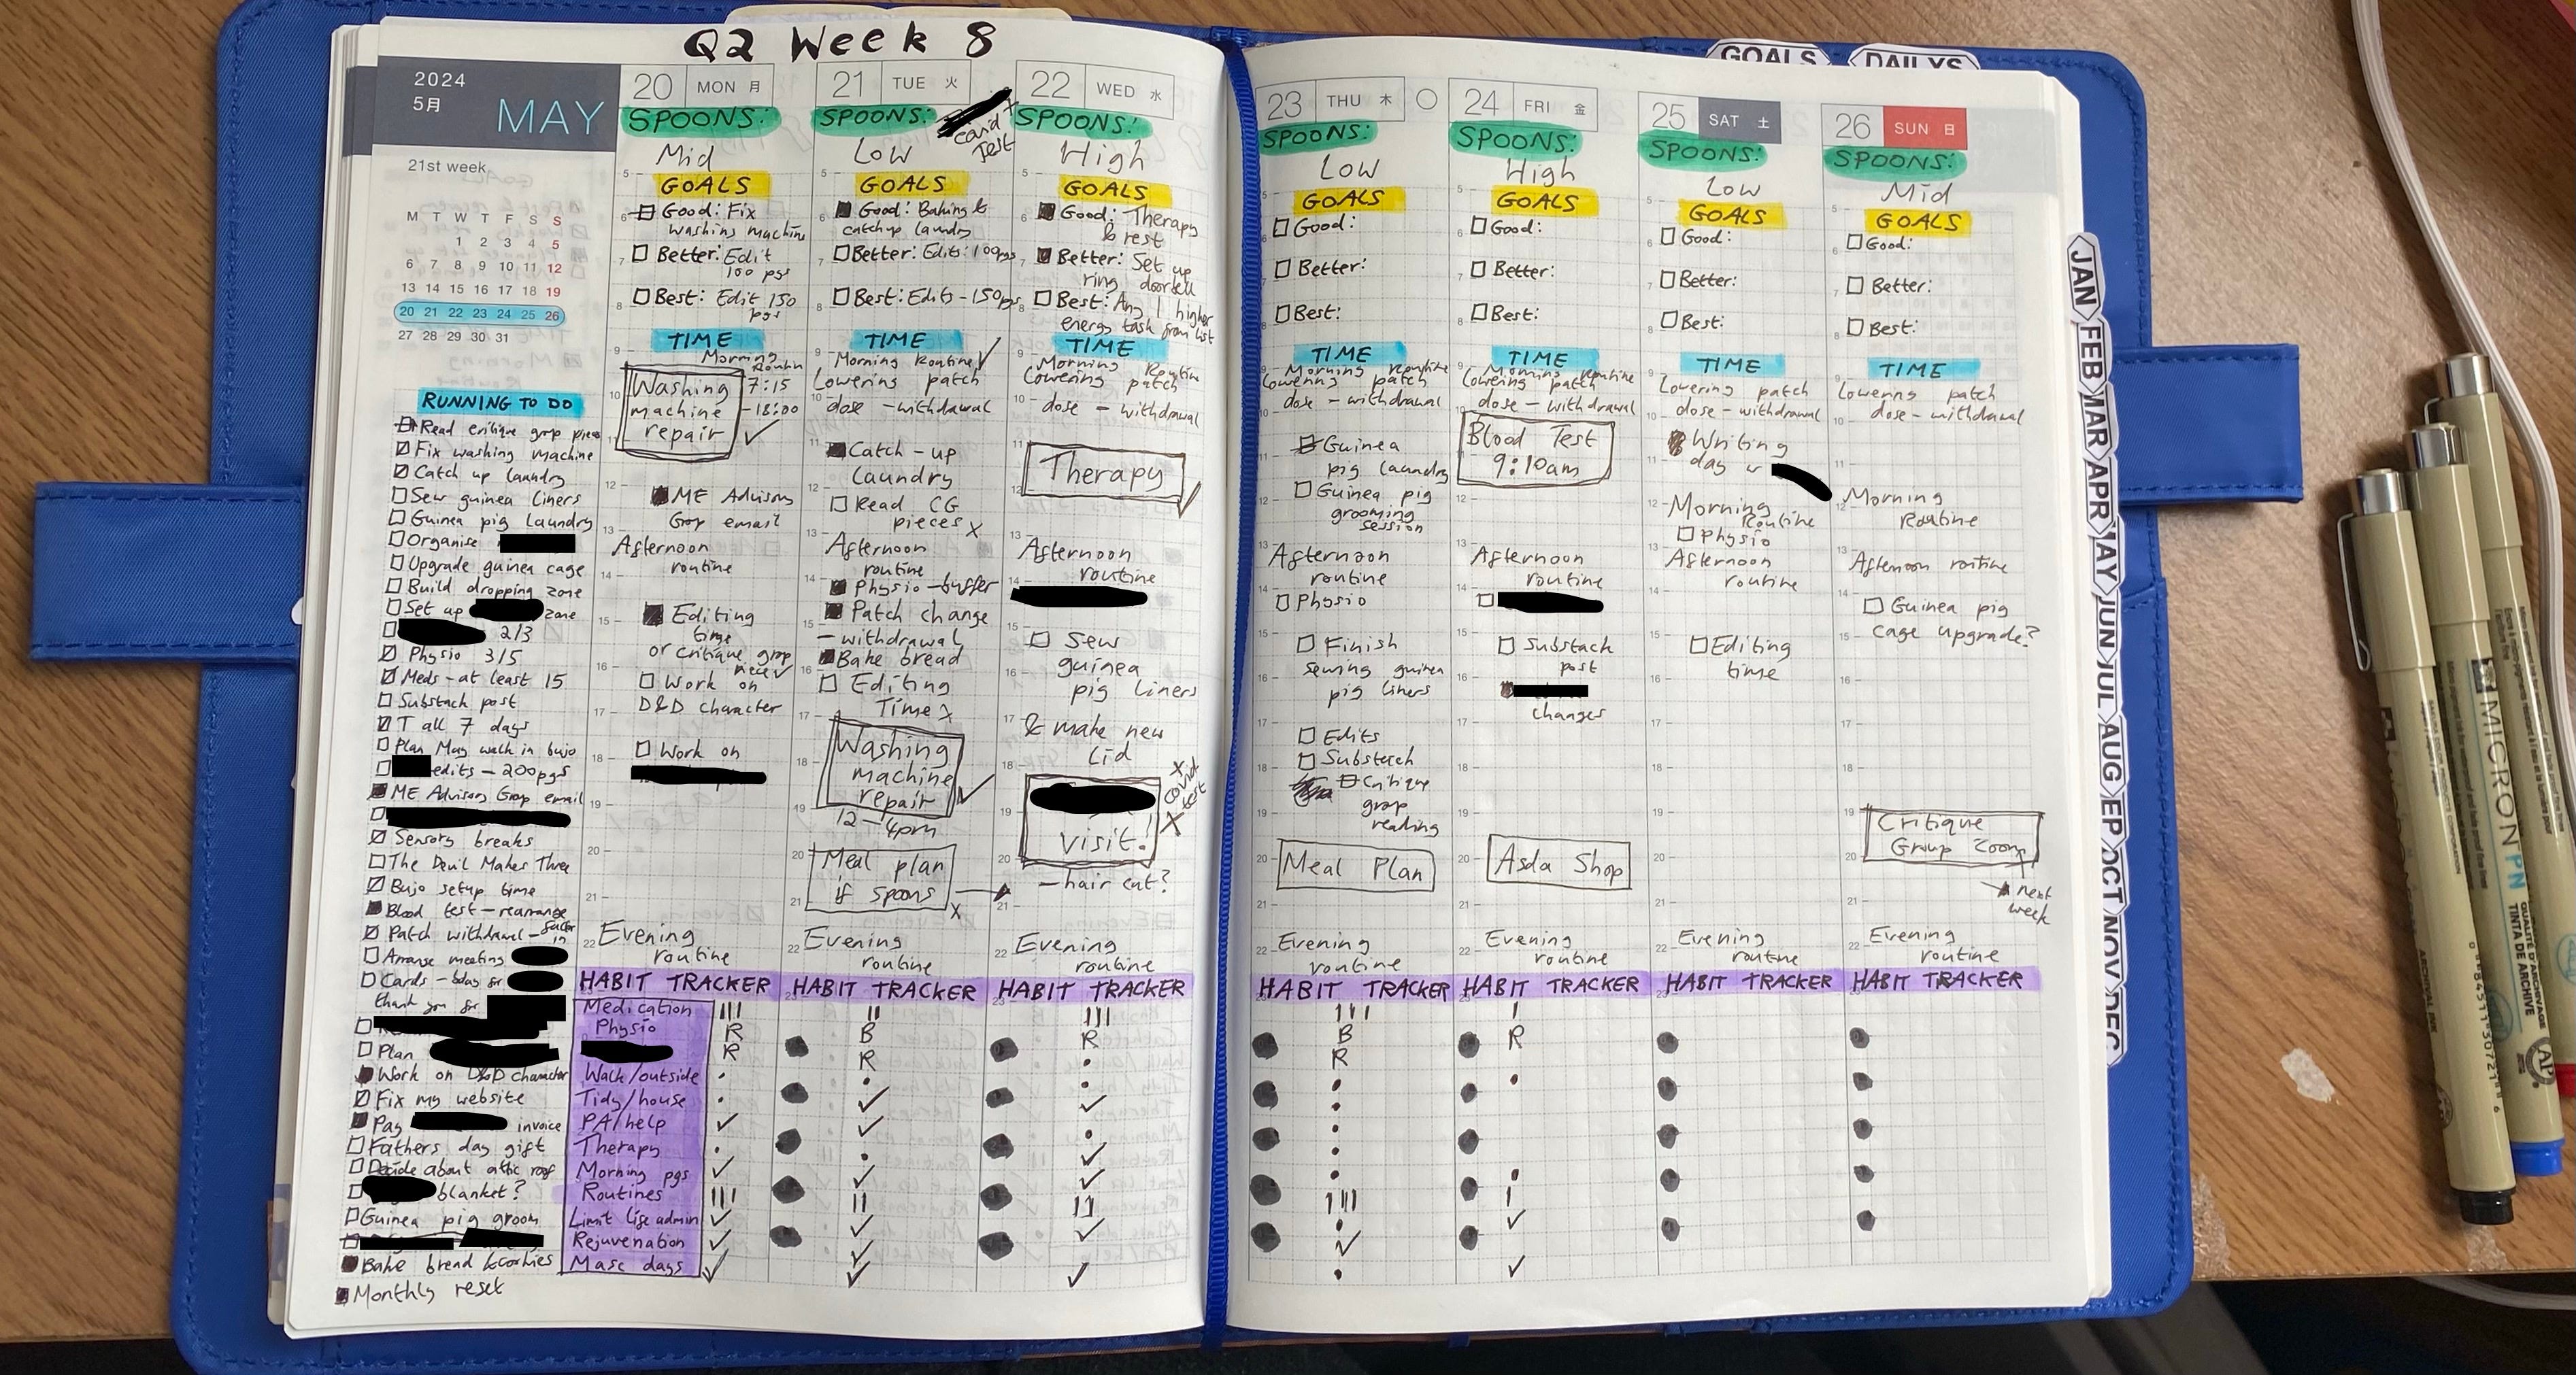 Q2 Week 8
GOALS
DAILYS
2024
5月
MAY
21st week
M T W T F S S
1 2 3 4 5
6 7 8 9 10 11 12
13 14 15 16 17 18 19
20 21 22 23 24 25 26
27 28 29 30 31
RUNNING TO DO
Read critique grop pieces
Fix washing machine
Catch up laundry
Sew guinea liners
Guinea pig laundry
Organise
Upgrade guinea cage
Build dropping zone
Set up zone
2/3
Physio 3/5
Meds - at least 15
Substack post
T all 7 days
Plan May walk in bujo
edits - 200pgs
ME Advisory Grop email
Sensory breaks
The Devil Makes Three
Bujo setup time
Blood test - rearrange
Patch withdrawal - factor in
Arrange meeting
Cards - bday for
thank you for
Plan
Work on D&D character
Fix my website
Pay invoice
Fathers day gift
Decide about attic roof
blanket?
Guinea pig groom
Bake bread & cookies
Monthly reset
20 MON 月
SPOONS:
Mid
GOALS
Good: Fix
washing machine
Better: Edit
100 pgs
Best: Edit 150
pgs
TIME
Morning
Routine
Washing
machine
repair
7:15
-18:00
ME Advisory
Grop email
Afternoon
routine
Editing
time
or critique grop
pieces
Work on
D&D character
Work on
Evening
routine
HABIT TRACKER
Medication
Physio
Walk/outside
Tidy/house
PA/help
Therapy
Morning pgs
Routines
Limit life admin
Rejuvenation
Masc days
III
R
R
III
21 TUE 火
SPOONS:
covid
Test
Low
GOALS
Good: Baking &
catchup laundry
Better: Edits: 100pgs
Best: Edits - 150pgs
TIME
Morning Routine
Lowering patch
dose - withdrawal
Catch-up
laundry
Read CG
pieces X
Afternoon
routine
Physio - buffer
Patch change
- withdrawal
Bake bread
Editing
Time X
Washing
machine
repair
12 - 4pm
Meal plan
if spoons
X
Evening
routine
HABIT TRACKER
II
B
R
II
22 WED 水
SPOONS:
High
GOALS
Good: Therapy
& rest
Better: Set up
ring doorbell
Best: Any 1 higher
energy task from list
TIME
Morning Routine
Lowering patch
dose - withdrawal
Therapy
Afternoon
routine
Sew
guinea
pig liners
& make new
lid
visit!
X covid test X
- hair cut?
Evening
routine
HABIT TRACKER
III
R
II
23 THU 木
SPOONS:
Low
GOALS
Good:
Better:
Best:
TIME
Morning Routine
Lowering patch
dose - withdrawal
Guinea
pig laundry
Guinea pig
grooming
session
Afternoon
routine
Physio
Finish
sewing guinea
pig liners
Edits
Substack
Critique
grop
reading
Meal Plan
Evening
routine
HABIT TRACKER
III
B
R
III
24 FRI 金
SPOONS:
High
GOALS
Good:
Better:
Best:
TIME
Morning Routine
Lowering patch
dose - withdrawal
Blood Test
9:10am
Afternoon
routine
Substack
post
changes
Asda Shop
Evening
routine
HABIT TRACKER
I
R
I
25 SAT 土
SPOONS:
Low
GOALS
Good:
Better:
Best:
TIME
Lowering patch
dose - withdrawal
Writing
day w
Morning
Routine
Physio
Afternoon
routine
Editing
time
Evening
routine
HABIT TRACKER
26 SUN 日
SPOONS:
Mid
GOALS
Good:
Better:
Best:
TIME
Lowering patch
dose - withdrawal
Morning
Routine
Afternoon routine
Guinea pig
cage upgrade?
Critique
Group Zoom
next
week
Evening
routine
HABIT TRACKER
JAN
FEB
MAR
APR
MAY
JUN
JUL
AUG
SEP
OCT
NOV
DEC
MICRON PN